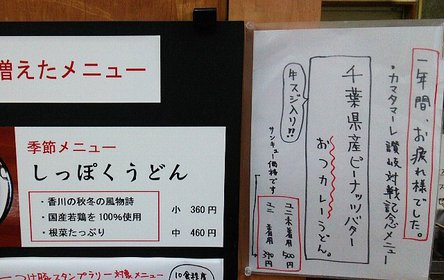 増えたメニュー
季節メニュー
しっぽくうどん
・香川の秋冬の風物詩
・国産若鶏を100%使用
・根菜たっぷり
小 360円
中 460円
つけ豚スタンプラリー 対象メニュー
一年間、お疲れ様でした。
・カマタマーレ讃岐対戦記念メニュー
千葉県産ピーナッツバター
おつカレーうどん。
牛スジ入り!!
サンキュー価格です
ユニ未着用 500円
ユニ着用 390円